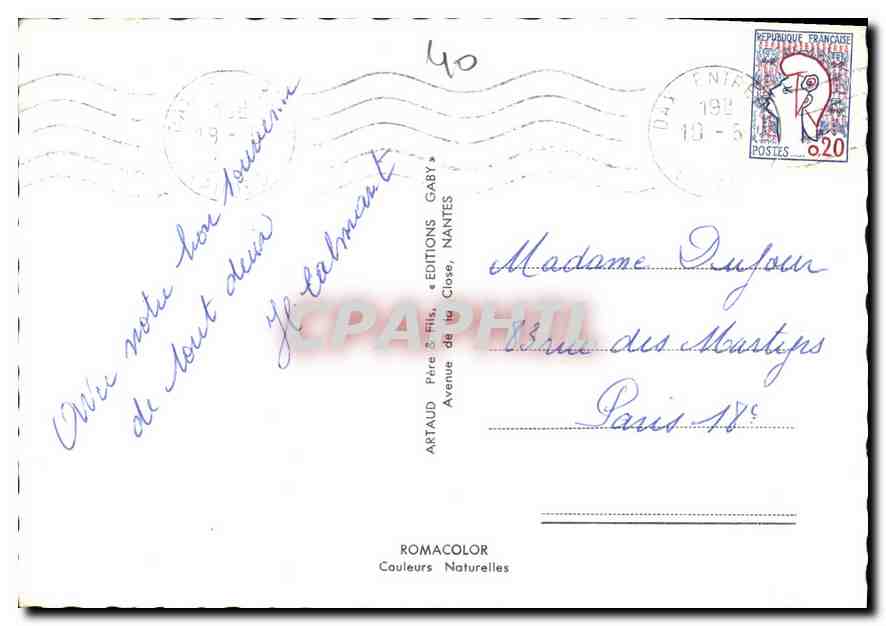 40
RÉPUBLIQUE FRANÇAISE
POSTES
0,20
DAX
19H
10 - 5
Avec notre bon souvenir
de tout deux
H Calmant
ARTAUD Père & Fils, « EDITIONS GABY »
Avenue de la Close, NANTES
CPAPHIL
Madame Dufour
83 rue des Martyrs
Paris 18e
ROMACOLOR
Couleurs Naturelles